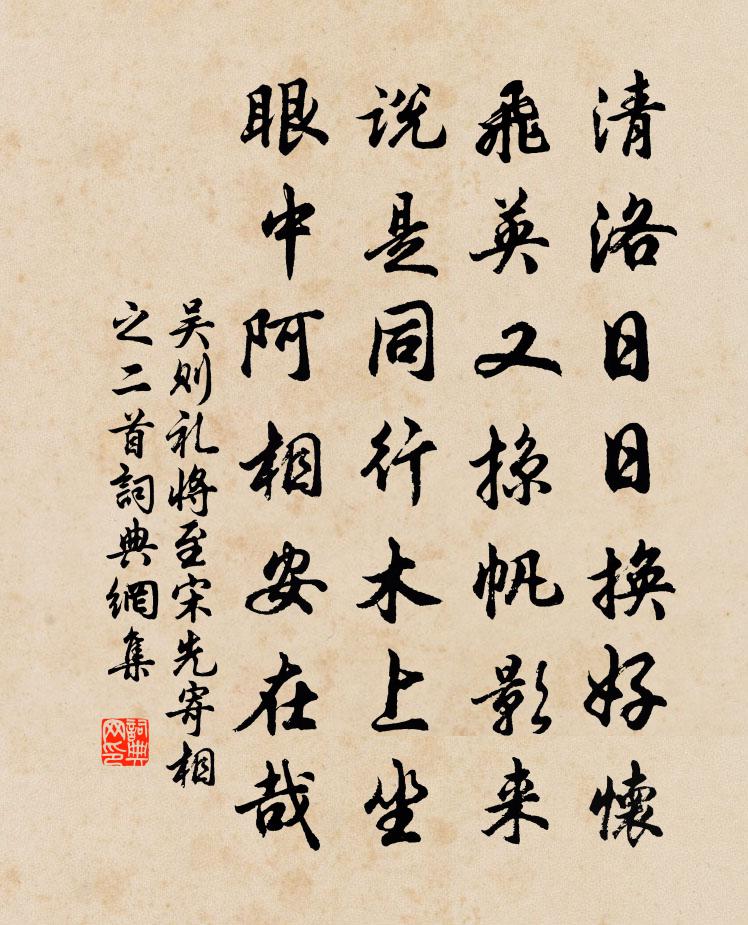 清洛日日換好懷
飛英又掠帆影来
说是同行木上坐
眼中阿相安在哉
吴则礼将至宋先寄相
之二首詞典網集
詞典
网印